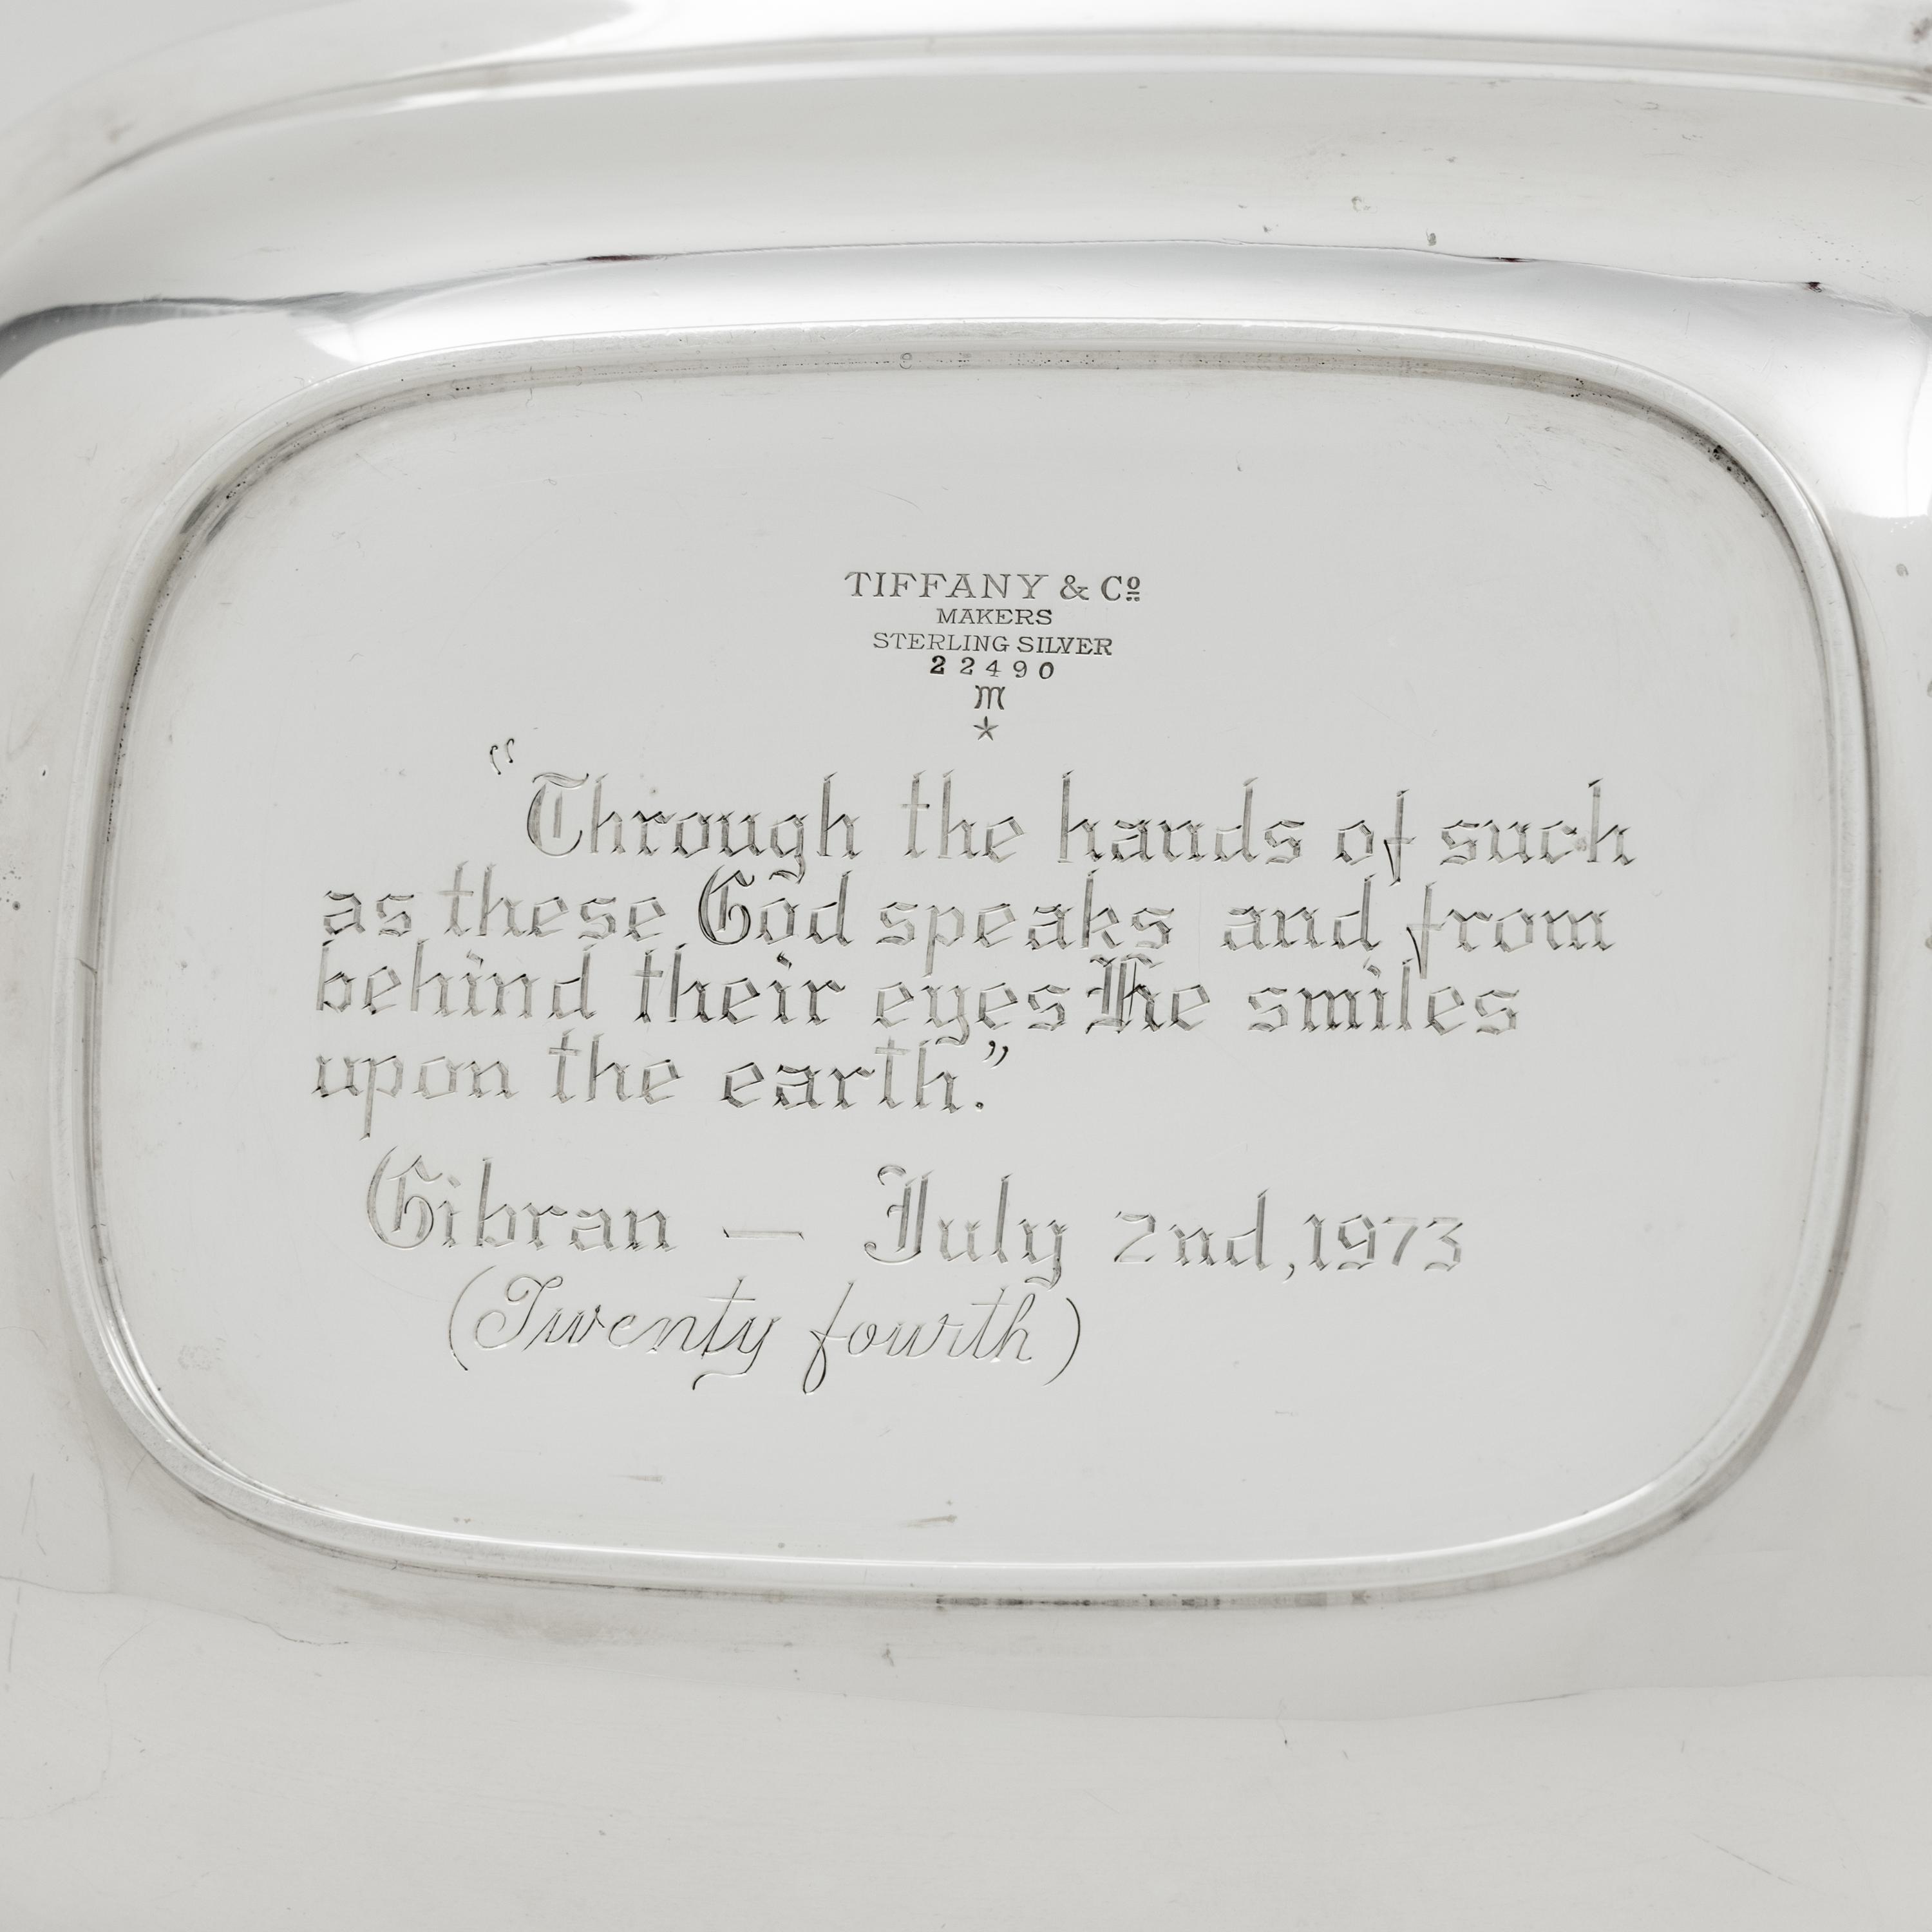 TIFFANY & Cº
MAKERS
STERLING SILVER
22490
m
“Through the hands of such
as these God speaks and from
behind their eyes He smiles
upon the earth.”
Gibran — July 2nd, 1973
(Twenty fourth)